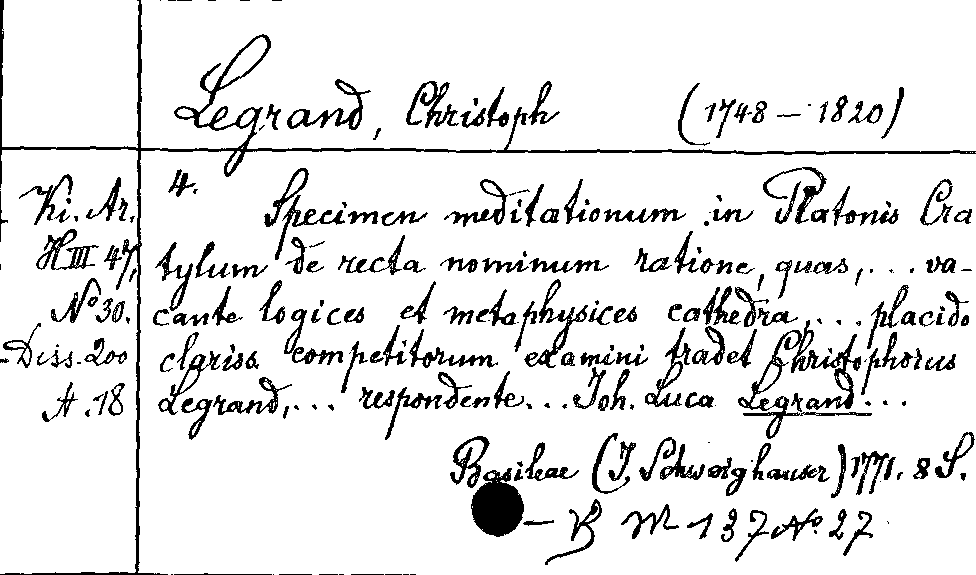 Legrand, Christoph (1748 – 1820)
Ki. Ar.
H III 47,
No 30.
Diss. 200
A. 18
4.
Specimen meditationum in Platonis Cra
tylum de recta nominum ratione, quas, ... va-
cante logices et metaphysices cathedra, ... placido
clariss. competitorum examini tradet Christophorus
Legrand, ... respondente ... Joh. Luca Legrand ...
Basileae (J. Schweighauser) 1771. 8 S.
– B M 137 No. 27